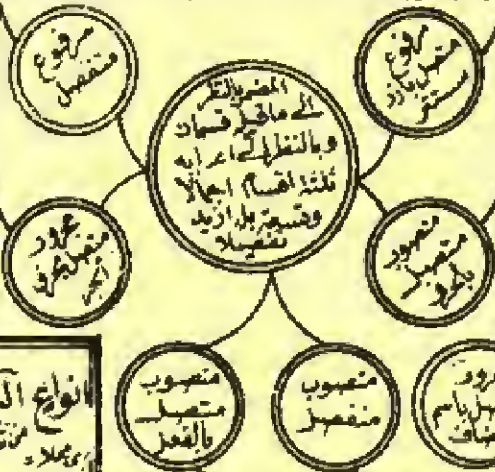 مرفوع
منفصل
مرفوع
متصل بارز
مستتر
المضمر بالنظر
الى ماقبله قسمان
وبالنظر الى اعرابه
ثلثة اقسام اجمالا
تفصيلا
مجرور
متصل بحرف
الجر
منصوب
متصل
بالحرف
منصوب
متصل
بالفعل
منصوب
منفصل
باسم
انواع